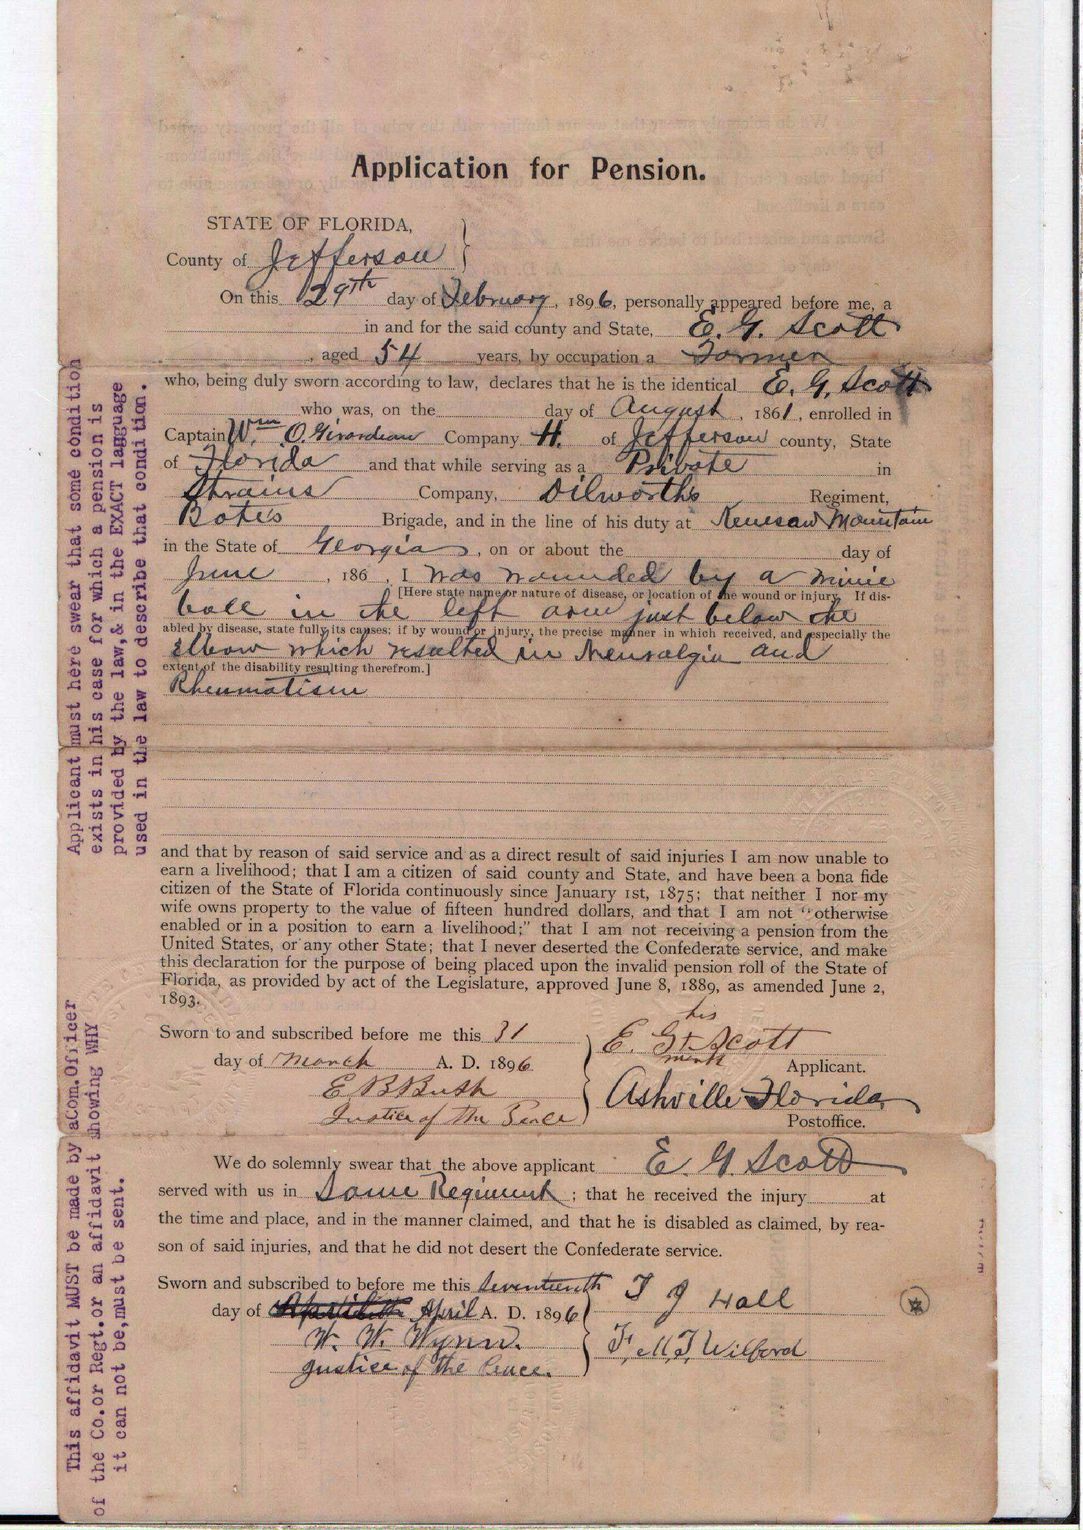 Application for Pension.
STATE OF FLORIDA,
County of Jefferson
On this 29th day of February, 1896, personally appeared before me, a
in and for the said county and State, E. G. Scott
, aged 54 years, by occupation a Farmer
who, being duly sworn according to law, declares that he is the identical E. G. Scott
who was, on the day of August, 1861, enrolled in
Captain Wm. O. Girardeau Company H. of Jefferson county, State
of Florida and that while serving as a Private in
Strains Company, Dilworth's Regiment,
Bate's Brigade, and in the line of his duty at Kenesaw Mountain
in the State of Georgia, on or about the day of
June, 186 , I was wounded by a minie
[Here state name or nature of disease, or location of the wound or injury. If dis-
ball in the left arm just below the
abled by disease, state fully its causes; if by wound or injury, the precise manner in which received, and especially the
Elbow which resulted in Neuralgia and
extent of the disability resulting therefrom.]
Rheumatism
and that by reason of said service and as a direct result of said injuries I am now unable to
earn a livelihood; that I am a citizen of said county and State, and have been a bona fide
citizen of the State of Florida continuously since January 1st, 1875; that neither I nor my
wife owns property to the value of fifteen hundred dollars, and that I am not "otherwise
enabled or in a position to earn a livelihood;" that I am not receiving a pension from the
United States, or any other State; that I never deserted the Confederate service, and make
this declaration for the purpose of being placed upon the invalid pension roll of the State of
Florida, as provided by act of the Legislature, approved June 8, 1889, as amended June 2,
1893.
Sworn to and subscribed before me this 31
day of March A. D. 1896
E B Bush
Justice of the Peace
his
E. G + Scott
mark
Applicant.
Ashville Florida
Postoffice.
We do solemnly swear that the above applicant E. G. Scott
served with us in Same Regiment; that he received the injury at
the time and place, and in the manner claimed, and that he is disabled as claimed, by rea-
son of said injuries, and that he did not desert the Confederate service.
Sworn and subscribed to before me this Seventeenth
day of April A. D. 1896
W. W. Wynn.
Justice of the Peace.
T J Hall
Wilford
Applicant must here swear that some condition
exists in his case for which a pension is
provided by the law,& in the EXACT language
used in the law to describe that condition.
This affidavit MUST be made by aCom.Officer
of the Co.or Regt.or an affidavit showing WHY
it can not be,must be sent.